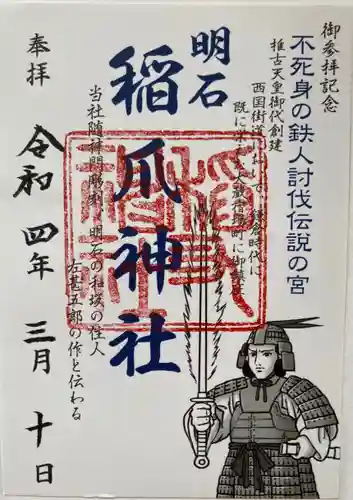 御参拝記念
不死身の鉄人討伐伝説の宮
推古天皇御代創建
西国街道において、鎌倉時代に
既に栄えし大蔵谷宿場町に御鎮座
明石
稲爪神社
当社随神門彫刻、明石の和坂の住人
左甚五郎の作と伝わる
奉拝
令和四年三月十日